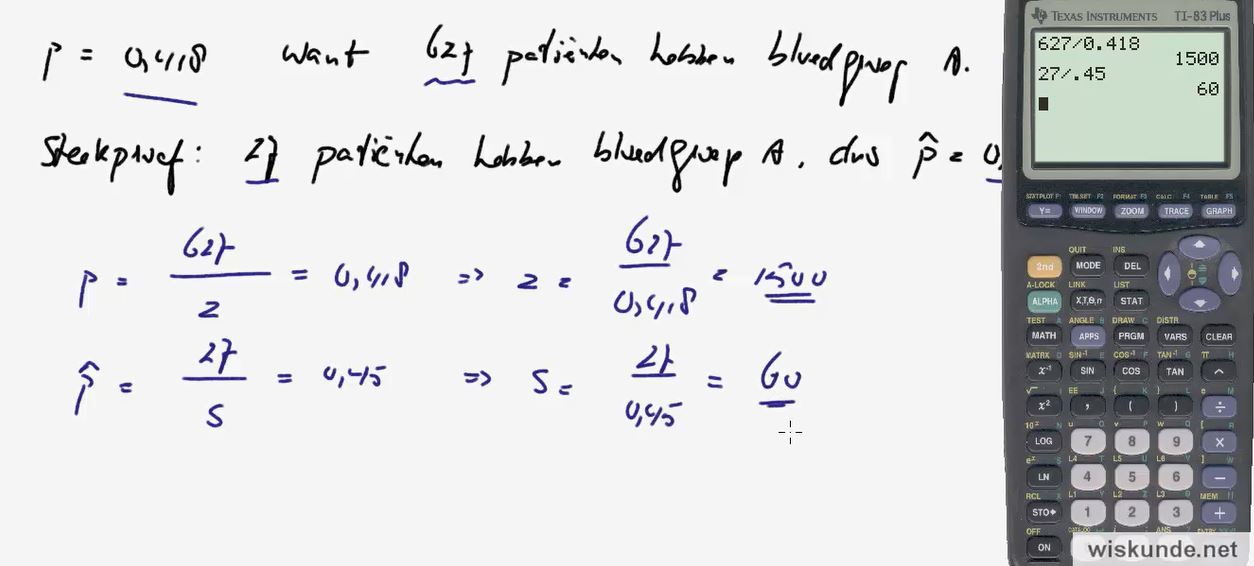 p = 0,418 want 627 patiënten hebben bloedgroep A.
Steekproef: 27 patiënten hebben bloedgroep A. dus p̂ = 0,
p = 627/z = 0,418 => z = 627/0,418 = 1500
p̂ = 27/s = 0,45 => s = 27/0,45 = 60
TEXAS INSTRUMENTS TI-83 Plus
627/0.418
1500
27/.45
60
STATPLOT F1 TBLSET F2 FORMAT F3 CALC F4 TABLE F5
Y= WINDOW ZOOM TRACE GRAPH
QUIT INS
2nd MODE DEL
A-LOCK LINK LIST
ALPHA X,T,θ,n STAT
TEST A ANGLE B DRAW C DISTR
MATH APPS PRGM VARS CLEAR
MATRX D SIN⁻¹ E COS⁻¹ F TAN⁻¹ G π H
x⁻¹ SIN COS TAN ^
√ I EE J { K } L e M
x² , ( ) ÷
10ˣ N u O v P w Q [ R
LOG 7 8 9 ×
eˣ S L4 T L5 U L6 V ] W
LN 4 5 6 −
RCL X L1 Y L2 Z L3 θ MEM "
STO▸ 1 2 3 +
OFF
ON
wiskunde.net